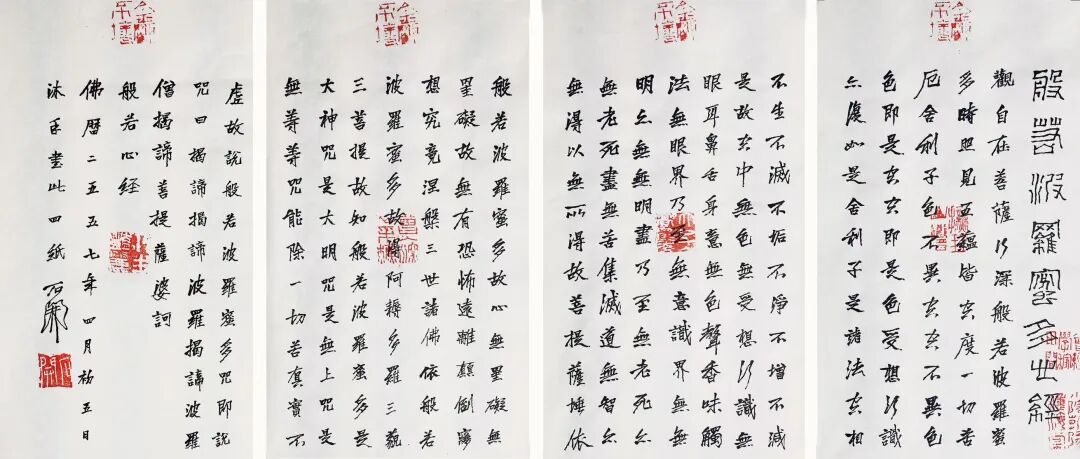 般若波羅蜜多心經
觀自在菩薩行深般若波羅蜜
多時照見五蘊皆空度一切苦
厄舍利子色不異空空不異色
色即是空空即是色受想行識
亦復如是舍利子是諸法空相
不生不滅不垢不淨不增不減
是故空中無色無受想行識無
眼耳鼻舌身意無色聲香味觸
法無眼界乃至無意識界無無
明亦無無明盡乃至無老死亦
無老死盡無苦集滅道無智亦
無得以無所得故菩提薩埵依
般若波羅蜜多故心無罣礙無
罣礙故無有恐怖遠離顛倒夢
想究竟涅槃三世諸佛依般若
波羅蜜多故得阿耨多羅三藐
三菩提故知般若波羅蜜多是
大神咒是大明咒是無上咒是
無等等咒能除一切苦真實不
虛故說般若波羅蜜多咒即說
咒曰揭諦揭諦波羅揭諦波羅
僧揭諦菩提薩婆訶
般若心經
佛曆二五五七年四月初五日
沐手書此四紙 石開